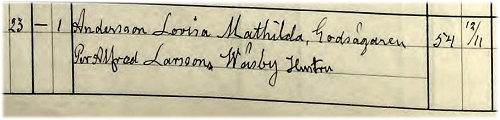 23 — 1 Andersson Lovisa Mathilda, Godsägaren 54 12/11
Per Alfred Larsons, Wäsby Hustru